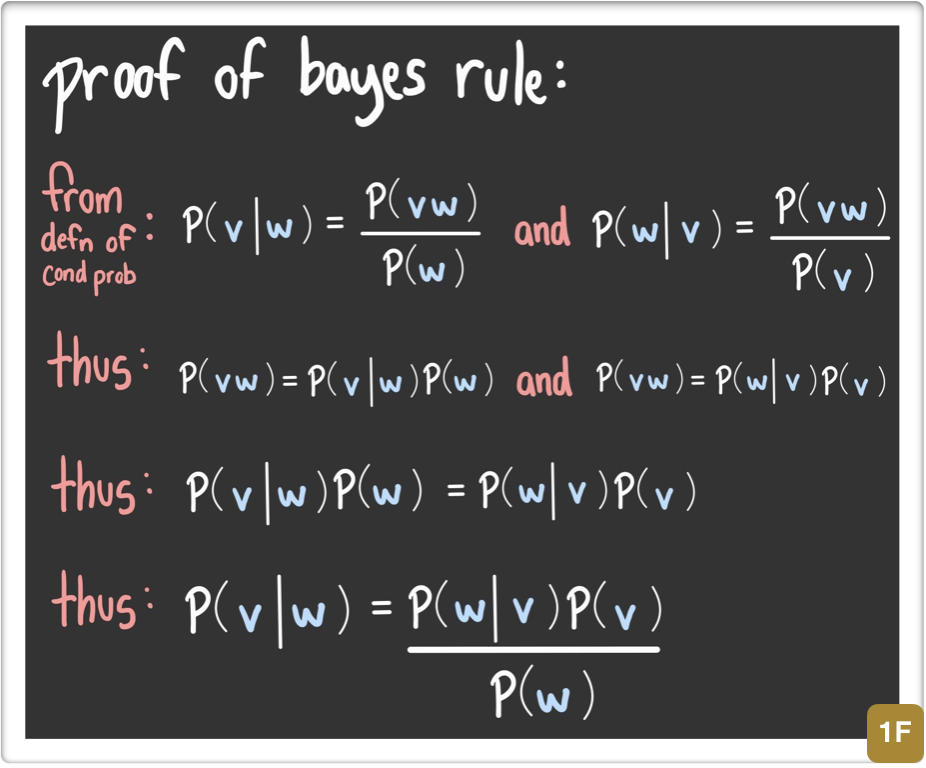 proof of bayes rule:
from defn of cond prob: P(v|w) = P(vw) / P(w) and P(w|v) = P(vw) / P(v)
thus: P(vw) = P(v|w)P(w) and P(vw) = P(w|v)P(v)
thus: P(v|w)P(w) = P(w|v)P(v)
thus: P(v|w) = P(w|v)P(v) / P(w)
1F